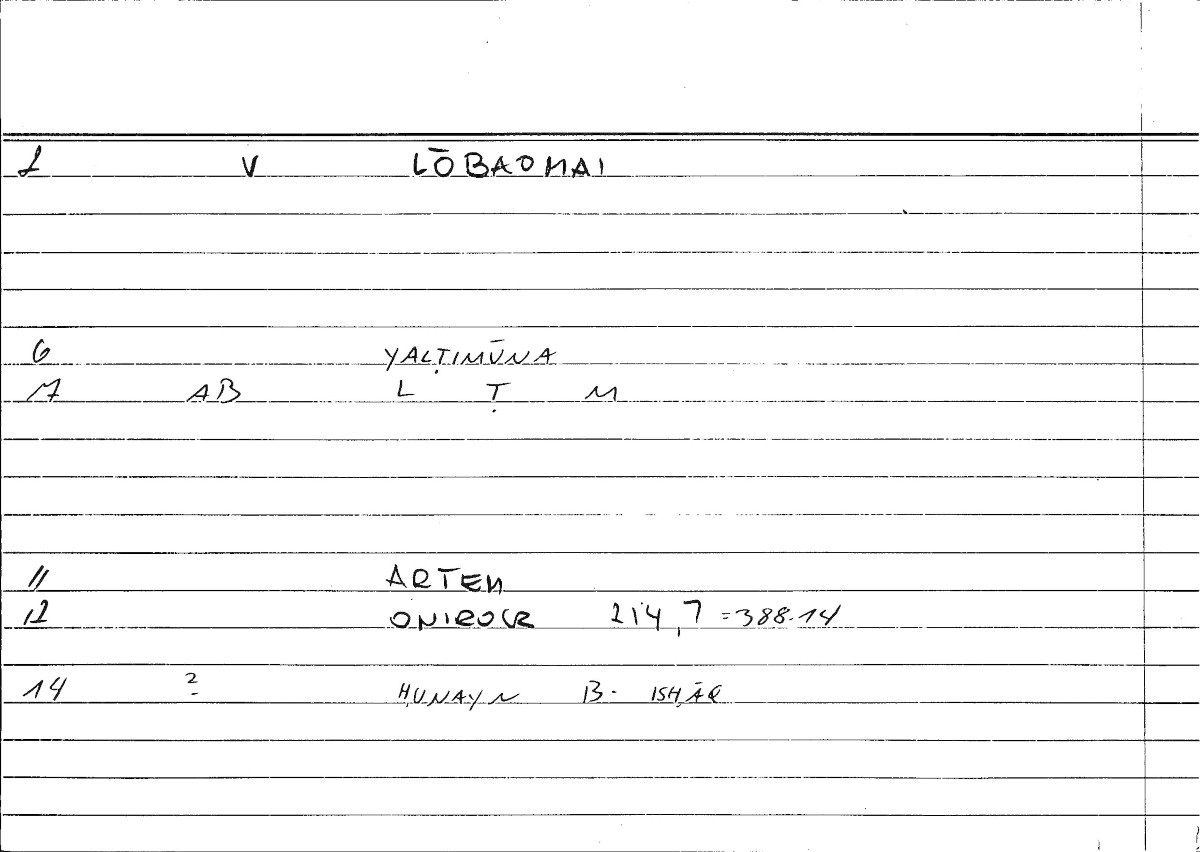 2 V LŌBAOMAI
6 YALṬIMŪNA
7 AB L Ṭ M
11 ARTEM
12 ONIROCR 214,7 = 388.14
14 2 ḤUNAYN B. ISḤĀQ